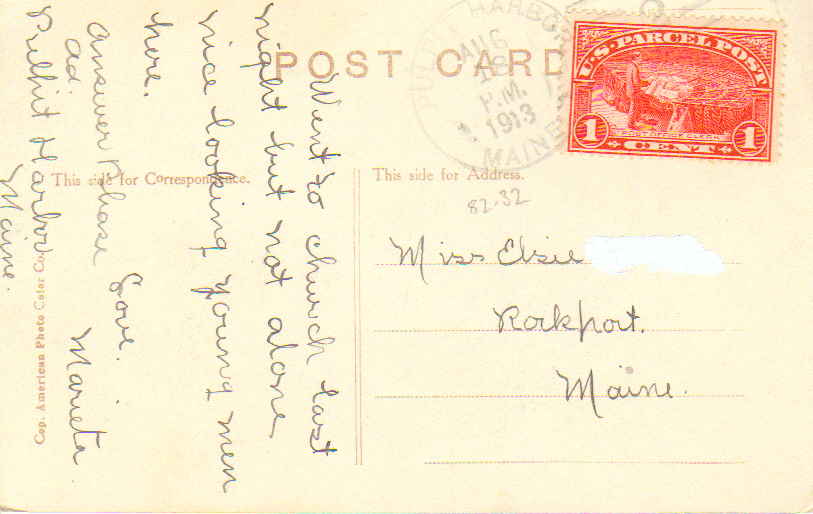 POST CARD
HARBOR
AUG
P.M.
1913
MAINE
U.S. PARCEL POST
1 POST OFFICE CLERK 1
CENT
This side for Correspondence.
This side for Address.
82-32
Miss Elsie
Rockport.
Maine.
Went to church last
night but not alone
nice looking young men
here.
Love.
Answer Please Marieta
ad.
Pulpit Harbor
Maine.
Cop. American Photo Color Co.